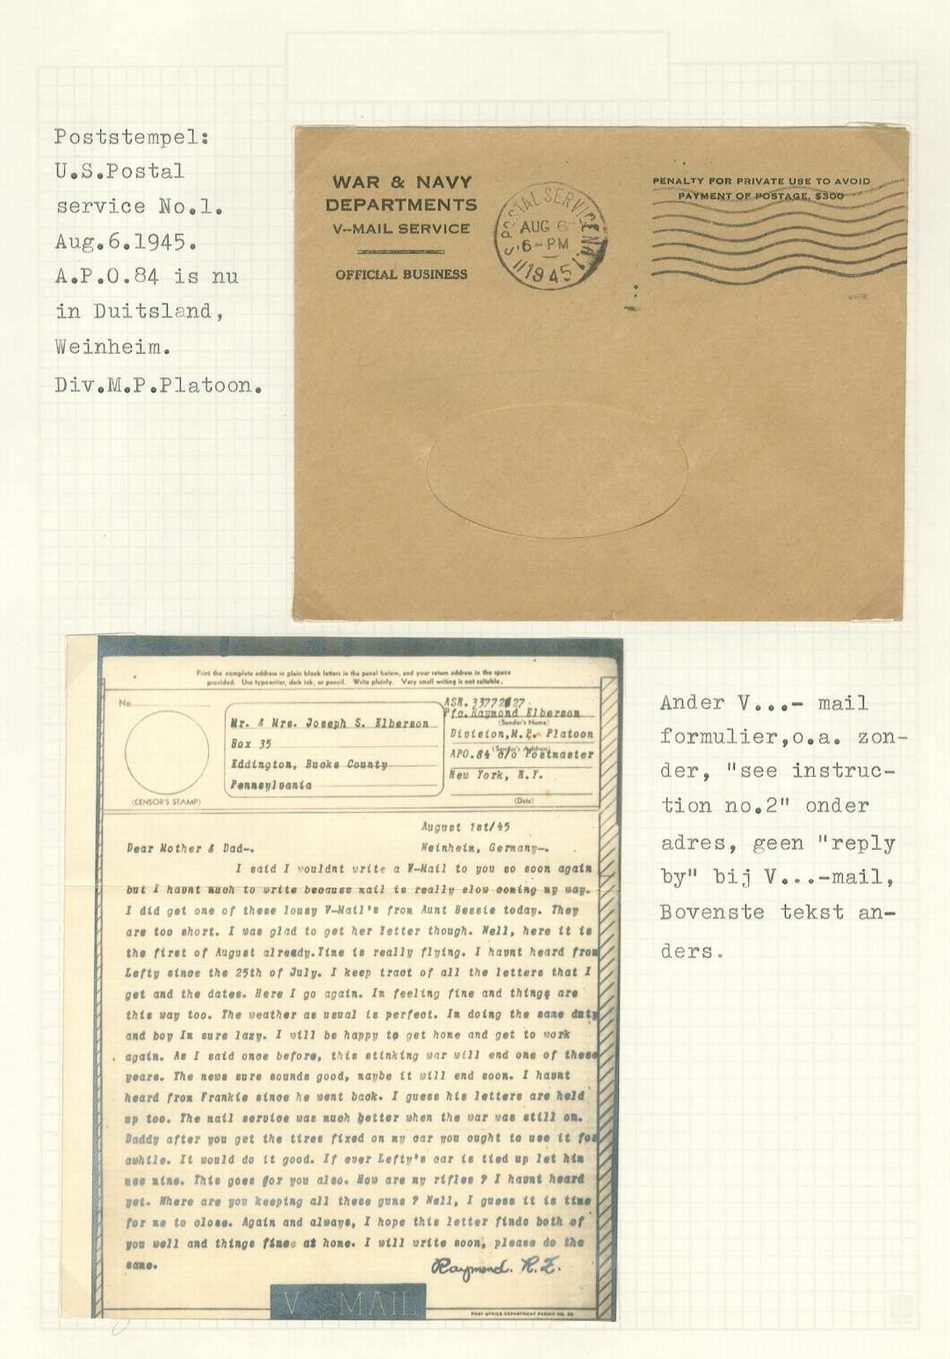 Poststempel:
U.S.Postal
service No.1.
Aug.6.1945.
A.P.O.84 is nu
in Duitsland,
Weinheim.
Div.M.P.Platoon.
WAR & NAVY
DEPARTMENTS
V--MAIL SERVICE
OFFICIAL BUSINESS
POSTAL SERVICE
AUG 6
6-PM
1945
PENALTY FOR PRIVATE USE TO AVOID
PAYMENT OF POSTAGE, $300
Print the complete address in plain black letters in the panel below, and your return address in the space
provided. Use typewriter, dark ink, or pencil. Write plainly. Very small writing is not suitable.
No.
(CENSOR'S STAMP)
Mr. & Mrs. Joseph S. Elberson
Box 35
Eddington, Bucks County
Pennsylvania
ASN.
Pfc.Raymond Elberson
(Sender's Name)
Division,M.P. Platoon
(Sender's Address)
APO.84 c/o Postmaster
New York, N.Y.
(Date)
August 1st/45
Dear Mother & Dad-. Weinheim, Germany-.
I said I wouldnt write a V-Mail to you so soon again
but I havnt much to write because mail is really slow coming my way.
I did get one of these lousy V-Mail's from Aunt Bessie today. They
are too short. I was glad to get her letter though. Well, here it is
the first of August already.Time is really flying. I havnt heard from
Lefty since the 25th of July. I keep tract of all the letters that I
get and the dates. Here I go again. Im feeling fine and things are
this way too. The weather as usual is perfect. Im doing the same duty
and boy Im sure lazy. I will be happy to get home and get to work
again. As I said once before, this stinking war will end one of these
years. The news sure sounds good, maybe it will end soon. I havnt
heard from Frankie since he went back. I guess his letters are held
up too. The mail service was much better when the war was still on.
Daddy after you get the tires fixed on my car you ought to use it for
awhile. It would do it good. If ever Lefty's car is tied up let him
use mine. This goes for you also. How are my rifles ? I havnt heard
yet. Where are you keeping all these guns ? Well, I guess it is time
for me to close. Again and always, I hope this letter finds both of
you well and things fine at home. I will write soon, please do the
same.
Raymond. R.E.
V - MAIL
Ander V...- mail
formulier,o.a. zon-
der, "see instruc-
tion no.2" onder
adres, geen "reply
by" bij V...-mail,
Bovenste tekst an-
ders.